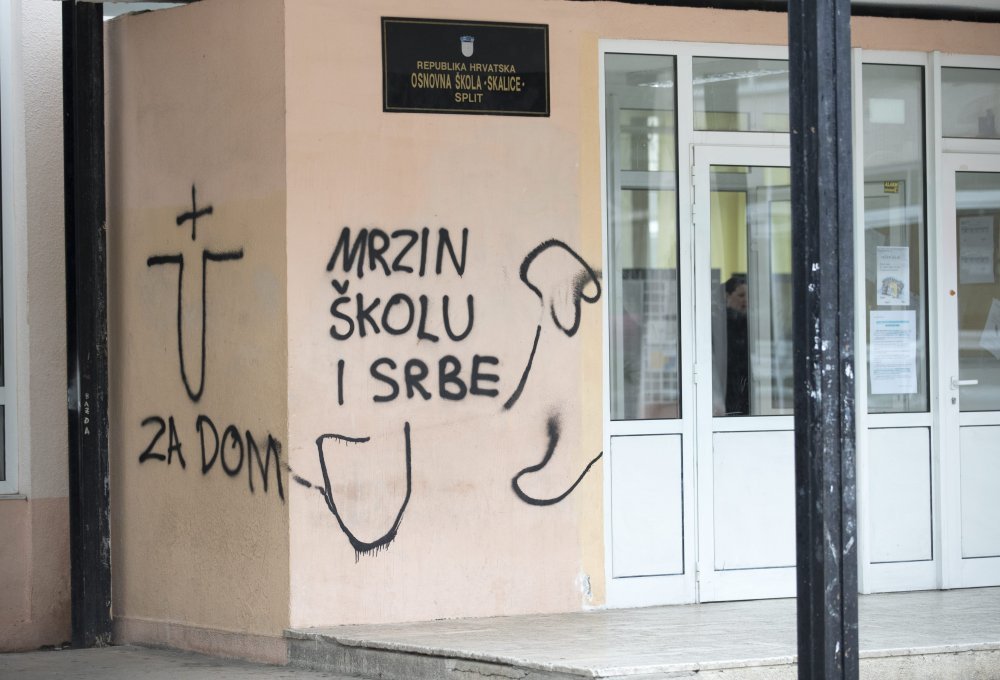 REPUBLIKA HRVATSKA
OSNOVNA ŠKOLA "SKALICE"
SPLIT
ZA DOM
MRZIN
ŠKOLU
I SRBE